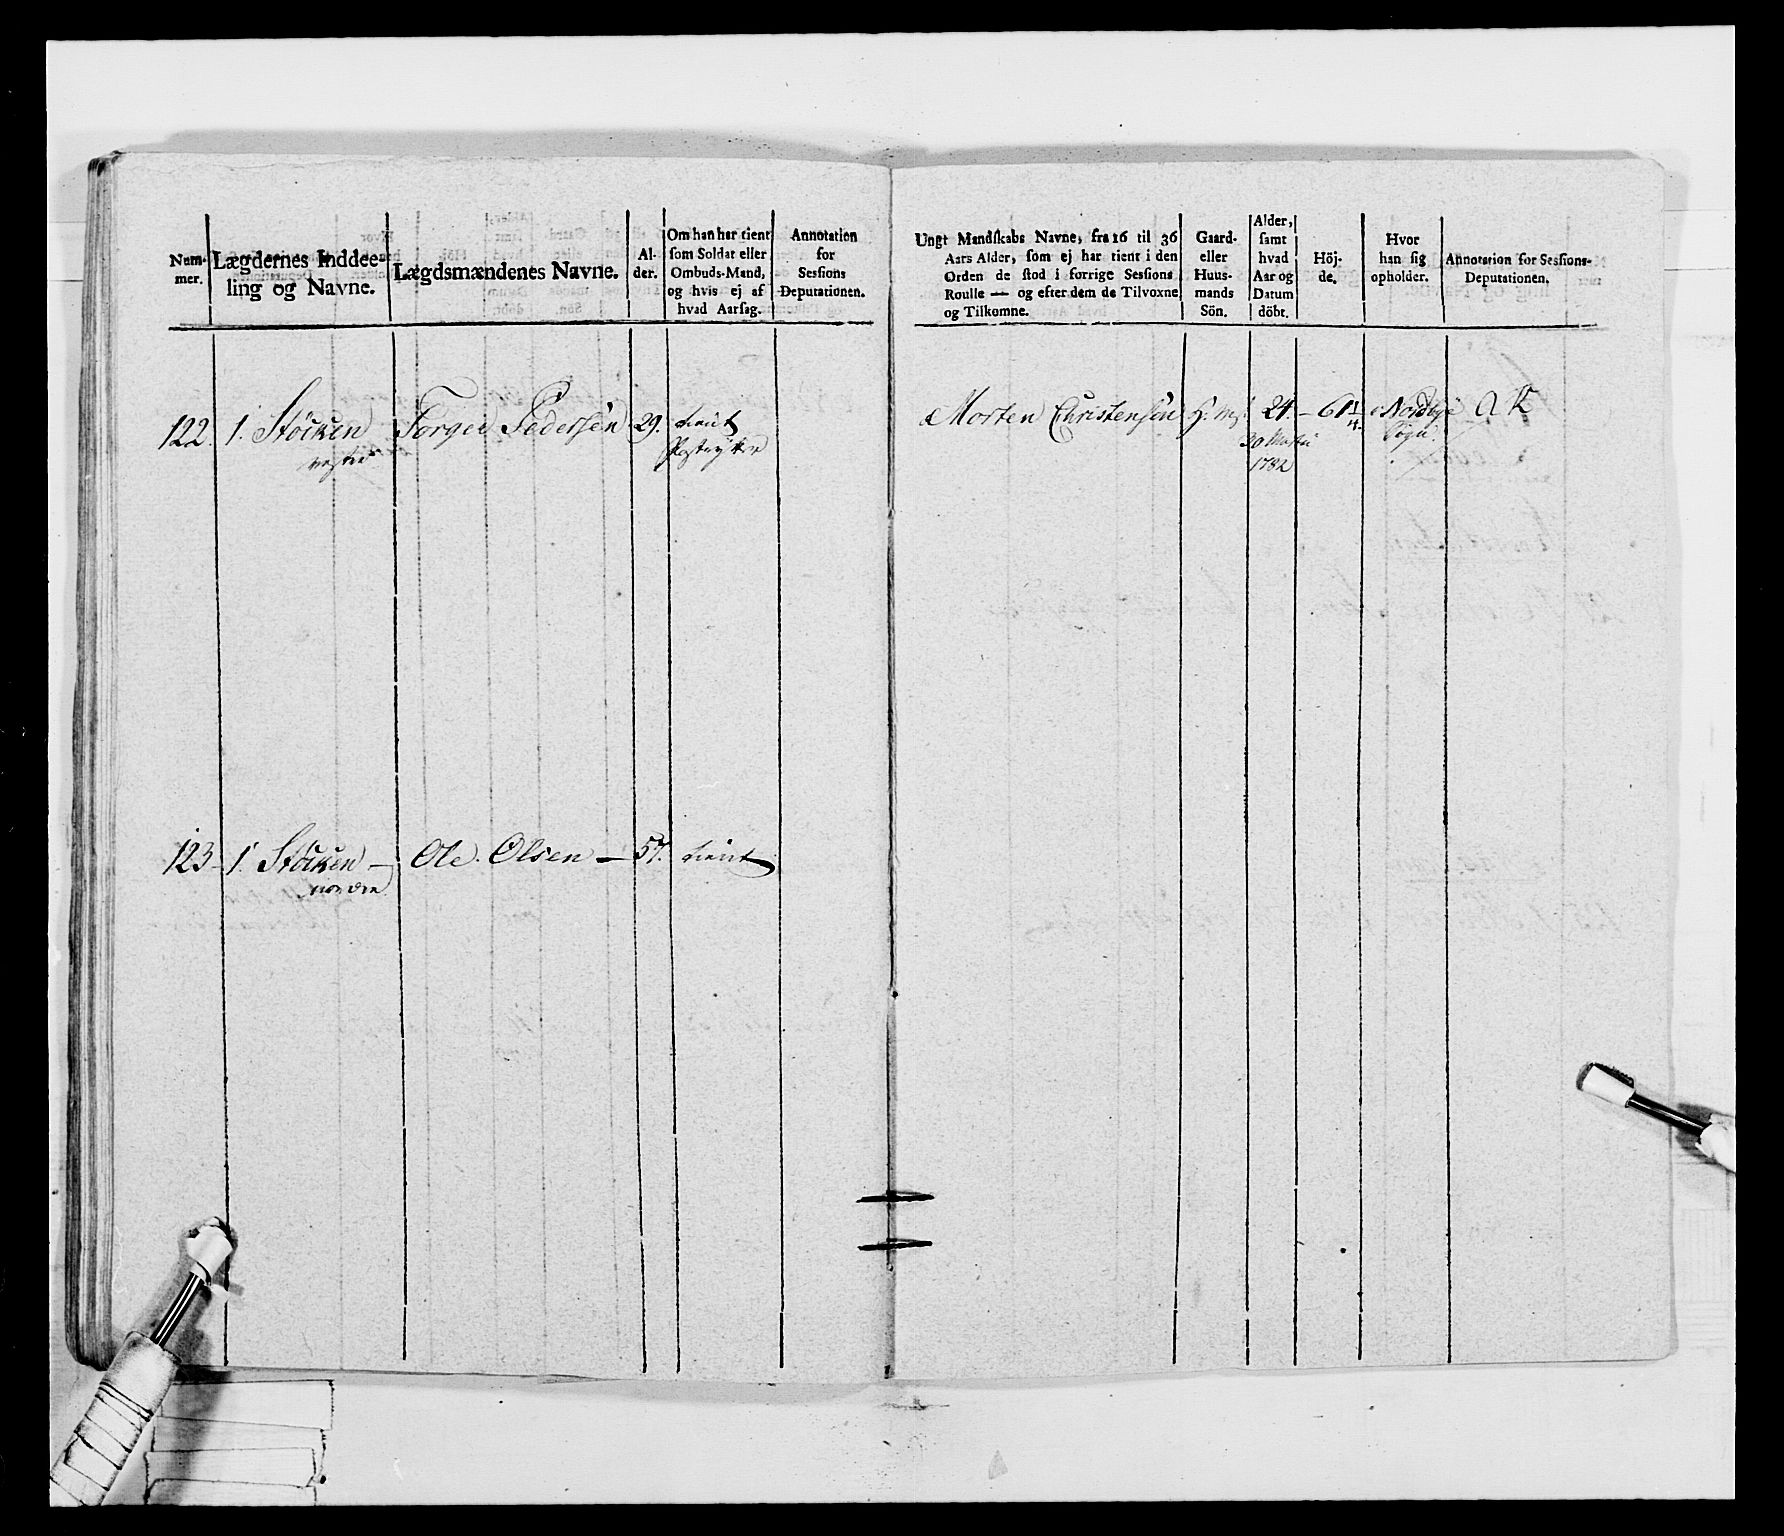 Num-
mer.
Lægdernes Inddee-
ling og Navne.
Lægdsmændenes Navne.
Al-
der.
Om han har tient
som Soldat eller
Ombuds-Mand,
og hvis ej af
hvad Aarsag.
Annotation
for
Sessions
Deputationen.
Ungt Mandskabs Navne, fra 16 til 36
Aars Alder, som ej har tient i den
Orden de stod i forrige Sessions
Roulle — og efter dem de Tilvoxne
og Tilkomne.
Gaard-
eller
Huus-
mands
Sön.
Alder,
samt
hvad
Aar og
Datum
döbt.
Höj-
de.
Hvor
han sig
opholder.
Annotation for Sessions-
Deputationen.
122. 1. Stöcken Torger Pedersen 29. tient
Morten Christensen H: M: 24 – 61 1/4
1782
123 – 1. Stöcken – Ole Olsen – 57. tient
nordre